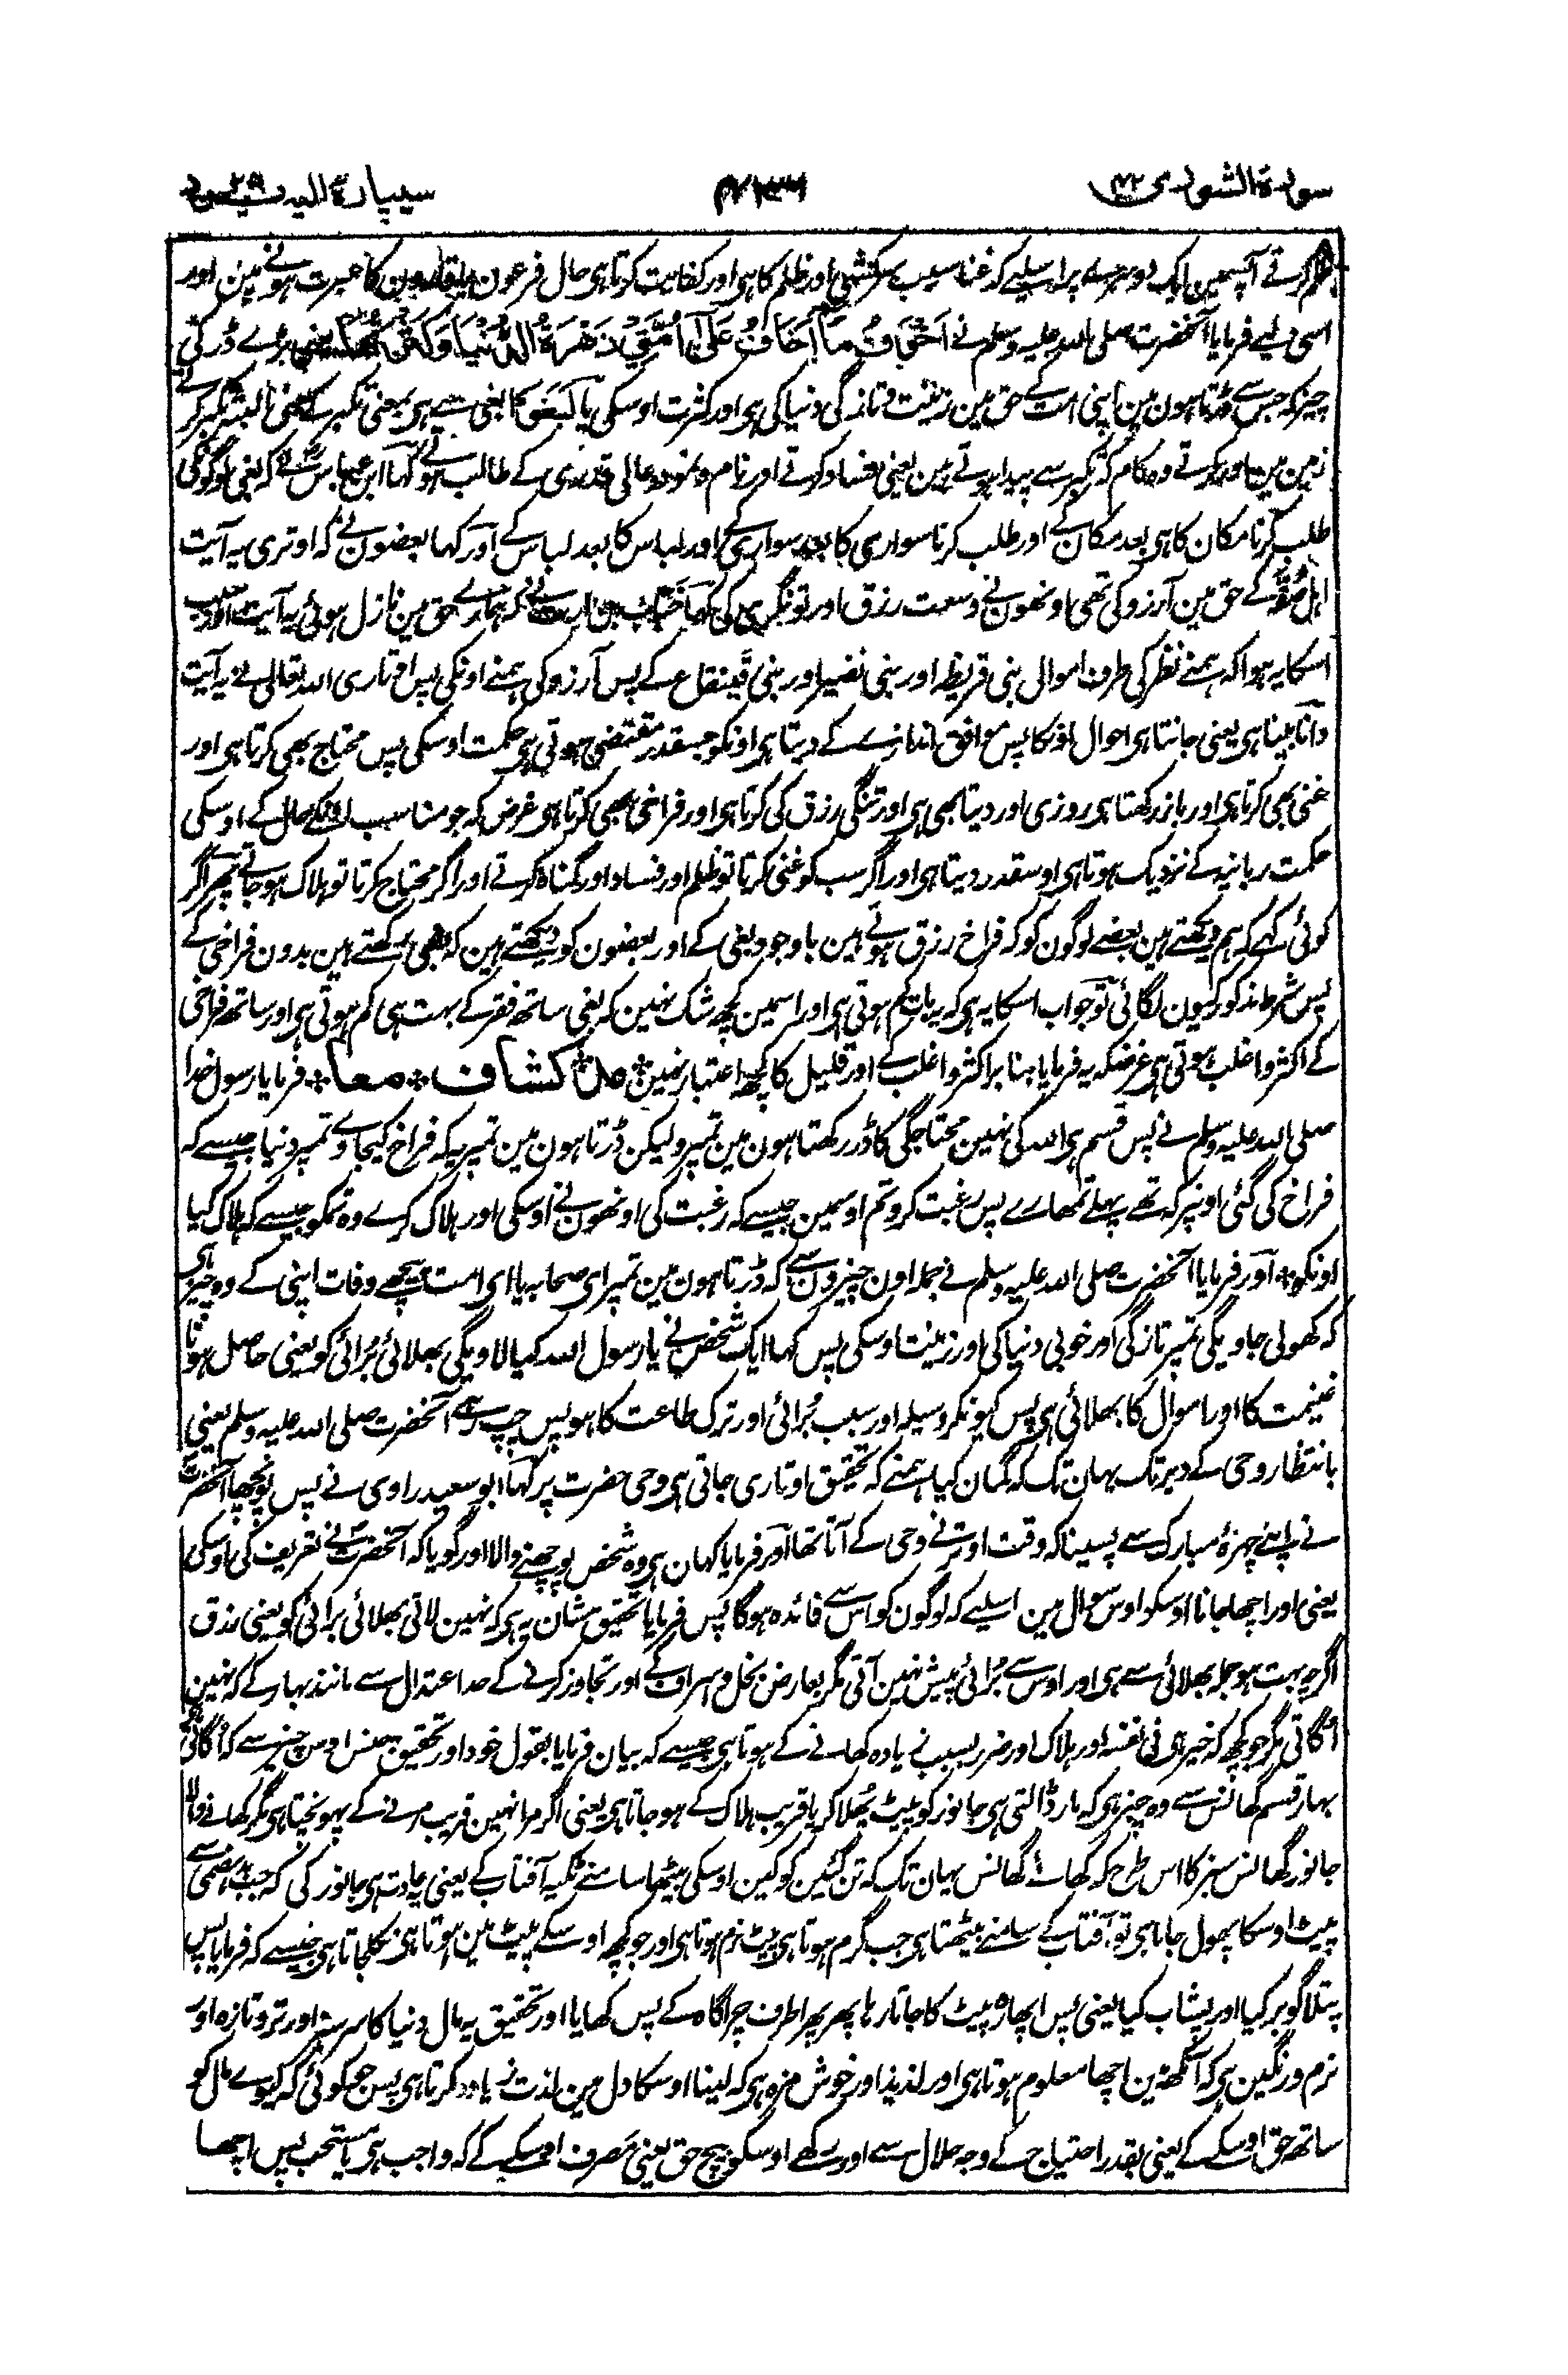 سورة الشوری ۴۲
سیپارۀ الیہ یرد ۲۵
ظلم کرتے آپسمین ایک دوسرے پر اسلیے کہ غنا سبب سرکشی اور ظلم کا ہی اور کفایت کرتا ہی حال فرعون اور قارون کا عبرت ہونے مین اور
اسی لیے فرمایا آنحضرت صلی اللہ علیہ وسلم نے اَخْوَفُ مَا اَخَافُ عَلٰی اُمَّتِیْ زَهْرَةُ الدُّنْیَا وَکَثْرَتُهَا یعنی بڑے ڈر کی
چیز کہ جس سے ڈرتا ہون مین اپنی امت کے حق مین زینت و تازگی دنیا کی ہی اور کثرت اوسکی یا لَبَغَوْا کا بغی سے ہی بمعنی تکبر کے یعنی البتہ تکبر کرتے
زمین مین اور کرتے وہ کام کہ تکبر سے پیدا ہوتے ہین یعنی فساد کرتے اور نام و نمود و عالی قدری کے طالب ہوتے کہا ابن عباس رض نے کہ بغی لوگونکی
طلب کرنا مکان کا ہی بعد مکان کے اور طلب کرنا سواری کا بعد سواری کے اور لباس کا بعد لباس کے اور کہا بعضون نے کہ اوتری یہ آیت
اہل صُفَّہ کے حق مین آرزو کی تھی اونھون نے وسعت رزق اور تونگری کی کہا خبّاب بن ارت نے کہ ہمارے حق مین نازل ہوئی یہ آیت اور سبب
اسکا یہ ہوا کہ ہمنے نظر کی طرف اموال بنی قریظہ اور بنی نضیر اور بنی قینقاع کے پس آرزو کی ہمنے اونکی پس اوتاری اللہ تعالی نے یہ آیت
دانا بینا ہی یعنی جانتا ہی احوال اونکا پس موافق اندازے کے دیتا ہی اونکو جسقدر مقتضی ہوتی ہی حکمت اوسکی پس محتاج بھی کرتا ہی اور
غنی بھی کرتا ہی اور باز رکھتا ہی روزی اور دیتا بھی ہی اور تنگی رزق کی کرتا ہی اور فراخی بھی کرتا ہی غرض کہ جو مناسب اونکے حال کے اوسکی
حکمت ربانیہ کے نزدیک ہوتا ہی اوسقدر دیتا ہی اور اگر سب کو غنی کرتا تو ظلم اور فساد اور گناہ کرتے اور اگر محتاج کرتا تو ہلاک ہوجاتے پھر اگر
کوئی کہے کہ ہم دیکھتے ہین بعضے لوگون کو کہ فراخ رزق ہوتے ہین باوجود بغی کے اور بعضون کو دیکھتے ہین کہ بغی رکھتے ہین بدون فراخی کے
پس شرط مذکور کیون لگائی تو جواب اسکا یہ ہی کہ یہ بات کم ہوتی ہی اور اسمین کچھ شک نہین کہ بغی ساتھ فقر کے بہت ہی کم ہوتی ہی اور ساتھ فراخی
کے اکثر و اغلب ہوتی ہی غرضکہ یہ فرمایا بنا بر اکثر و اغلب کے اور قلیل کا کچھ اعتبار نہین * کشاف * معا * فرمایا رسول خدا
صلی اللہ علیہ وسلم نے پس قسم ہی اللہ کی نہین محتاجگی کا ڈر رکھتا ہون مین تمپر ولیکن ڈرتا ہون مین تمپر یہ کہ فراخ کیجاوے تمپر دنیا جیسے کہ
فراخ کی گئی اونپر کہ تھے پہلے تمھارے پس رغبت کرو تم اوسمین جیسے کہ رغبت کی اونھون نے اوسکی اور ہلاک کرے وہ تمکو جیسے کہ ہلاک کیا
اونکو * اور فرمایا آنحضرت صلی اللہ علیہ وسلم نے جملہ اون چیزون سے کہ ڈرتا ہون مین تمپر ای صحابہ یا ای امت پیچھے وفات اپنی کے وہ چیز ہی
کہ کھولی جاویگی تمپر تازگی اور خوبی دنیا کی اور زینت اوسکی پس کہا ایک شخص نے یا رسول اللہ کیا لاویگی بھلائی بُرائی کو یعنی حاصل ہونا
غنیمت کا اور اموال کا بھلائی ہی پس کیونکر وسیلہ اور سبب بُرائی اور ترک طاعت کا ہو پس چپ رہے آنحضرت صلی اللہ علیہ وسلم یعنی
بانتظار وحی کے دیر تک یہان تک کہ گمان کیا ہمنے کہ تحقیق اوتاری جاتی ہی وحی حضرت پر کہا ابو سعید راوی نے پس پونچھا آنحضرت
نے اپنے چہرۂ مبارک سے پسینا کہ وقت اوترنے وحی کے آتا تھا اور فرمایا کہان ہی وہ شخص پوچھنے والا اور گویا کہ آنحضرت نے تعریف کی اوسکی
یعنی اور اچھا جانا اوسکو اوس سوال مین اسلیے کہ لوگون کو اس سے فائدہ ہوگا پس فرمایا تحقیق شان یہ ہی کہ نہین لاتی بھلائی برائی کو یعنی رزق
اگرچہ بہت ہو جملہ بھلائی سے ہی اور اوس سے بُرائی پیش نہین آتی مگر بعارض بخل و اسراف کے اور تجاوز کرنے کے حد اعتدال سے مانند بہار کے کہ نہین
اُگاتی مگر جو کچھ کہ خیر ہی فی نفسہ اور ہلاک اور ضرر بسبب زیادہ کھانے کے ہوتا ہی جیسے کہ بیان فرمایا بقول خود اور تحقیق جنس اوس چیز سے کہ اُگاتی ہی
بہار قسم گھانس سے وہ چیز ہی کہ مار ڈالتی ہی جانور کو پیٹ پُھلا کر یا قریب ہلاک کے ہوجاتا ہی یعنی اگر مرا نہین قریب مرنے کے پہونچتا ہی مگر کھانے والا
جانور گھانس سبز کا اس طرح کہ کھائے گھانس یہان تک کہ تن گئین کوکین اوسکی بیٹھا سامنے ٹکیہ آفتاب کے یعنی یہ عادت ہی جانور کی کہ جب بدہضمی سے
پیٹ اوسکا پھول جاتا ہی تو آفتاب کے سامنے بیٹھتا ہی جب گرم ہوتا ہی پیٹ نرم ہوتا ہی اور جو کچھ اوسکے پیٹ مین ہوتا ہی نکلجاتا ہی جیسے کہ فرمایا پس
پتلا گوبر کیا اور پیشاب کیا یعنی پس اپھارہ پیٹ کا جاتا رہا پھر پھرا طرف چراگاہ کے پس کھایا اور تحقیق یہ مال دنیا کا سرسبز اور تر و تازہ اور
نرم و رنگین ہی کہ آنکھ مین اچھا معلوم ہوتا ہی اور لذیذ اور خوش مزہ ہی کہ لینا اوسکا دل مین لذت زیادہ کرتا ہی پس جو کوئی کہ لیوے مال کو
ساتھ حق اوسکے کے یعنی بقدر احتیاج کے وجہ حلال سے اور رکھے اوسکو بیچ حق یعنی مَصرف اوسکے کے کہ واجب ہی یا مستحب پس اچھا